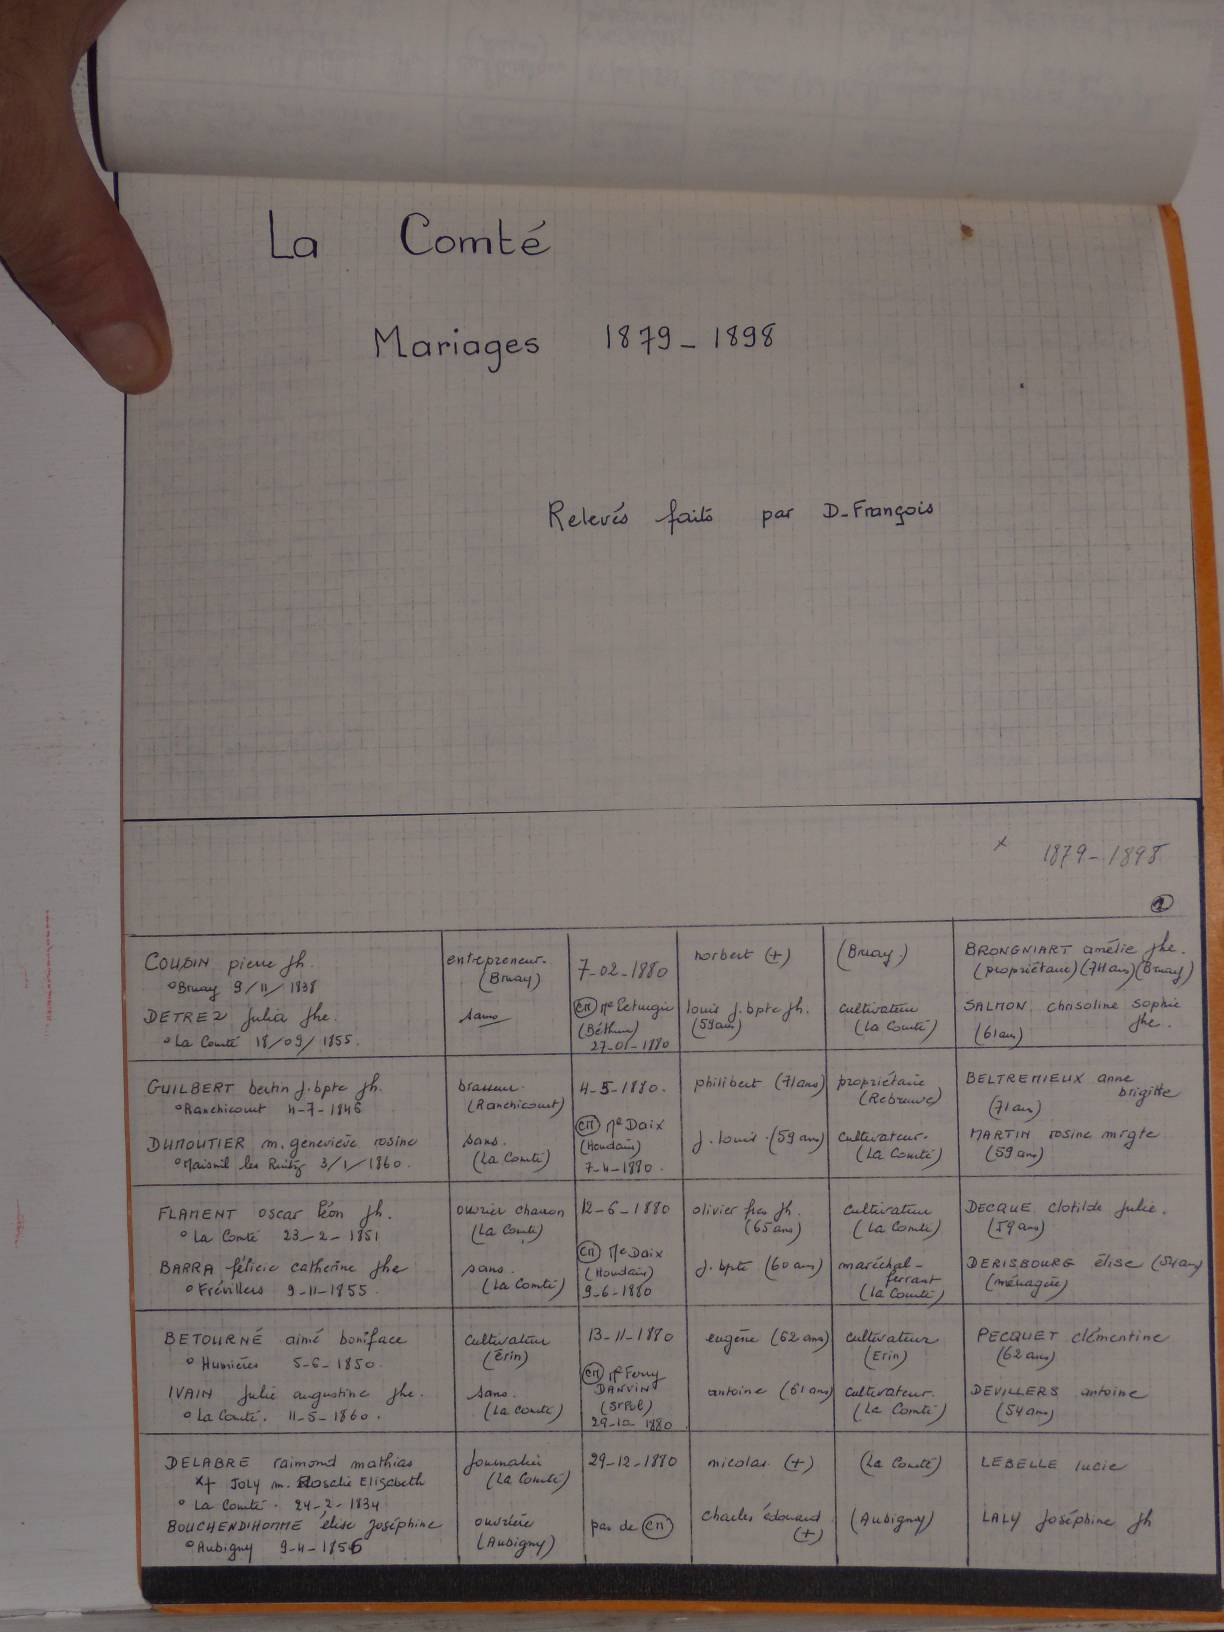 La Comté
Mariages 1879-1898
Relevés faits par D-François
x 1879-1898
①
COUSIN pierre jh. entrepreneur. 7-02-1880 norbert (+) (Bruay) BRONGNIART amélie jhe.
° Bruay 9/11/1838 (Bruay) (propriétaire) (74 ans) (Bruay)
DETREZ Julia jhe. sans (CM) Me Peturgie louis j.bpte jh. cultivateur SALMON chrisoline sophie jhe.
° La Comté 18/09/1855. (Béthune) (59ans) (La Comté) (61ans)
27-01-1880
GUILBERT bertin j.bpte jh. brasseur. 4-5-1880. philibert (71ans) propriétaire BELTREMIEUX anne brigitte
° Ranchicourt 4-7-1846 (Ranchicourt) (Rebreuve) (71ans)
DUMOUTIER m. geneviève rosine sans. (CM) Me Daix j. louis. (59 ans) cultivateur. MARTIN rosine mrgte
° Maisnil les Ruitz 3/1/1860. (La Comté) (Houdain) (La Comté) (59 ans)
7-4-1880.
FLAMENT oscar léon jh. ouvrier charron 12-6-1880 olivier fcs jh. cultivateur DECQUE clotilde Julie.
° La Comté 23-2-1851 (La Comté) (65 ans) (La Comté) (59ans)
BARRA félicie catherine jhe sans. (CM) Me Daix j. bpte (60 ans) maréchal-ferrant DERISBOURG élise (54ans)
° Frévillers 9-11-1855. (La Comté) (Houdain) (La Comté) (ménagère)
9-6-1880
BETOURNÉ aimé boniface cultivateur 13-11-1880 eugène (62 ans) cultivateur PECQUET clémentine
° Humières 5-6-1850. (Erin) (Erin) (62 ans)
IVAIN Julie augustine jhe. sans. (CM) Me Ferry antoine (61 ans) cultivateur. DEVILLERS antoine
° La Comté. 11-5-1860. (La Comté) DANVIN (La Comté) (54ans)
(St Pol)
29-10-1880
DELABRE raimond mathias journalier 29-12-1880 nicolas (+) (La Comté) LEBELLE lucie
x+ JOLY m. Rosalie Elisabeth (La Comté)
° La Comté. 24-2-1834
BOUCHENDHOMME élise joséphine ouvrière pas de (CM) charles édouard (+) (Aubigny) LALY Joséphine jh
° Aubigny 9-4-1856 (Aubigny)